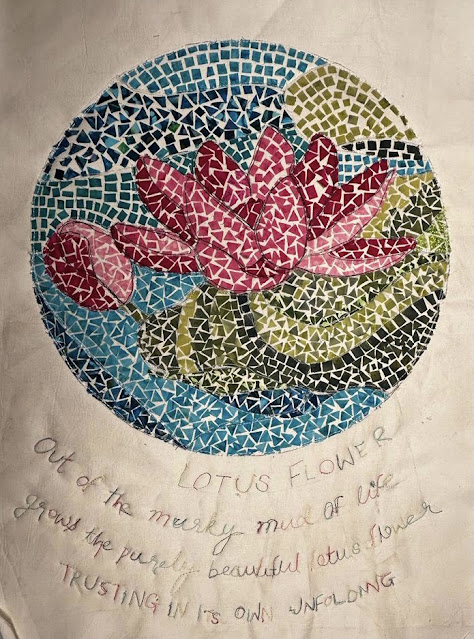 LOTUS FLOWER
Out of the murky mud of life
grows the purely beautiful lotus flower
TRUSTING IN ITS OWN UNFOLDING